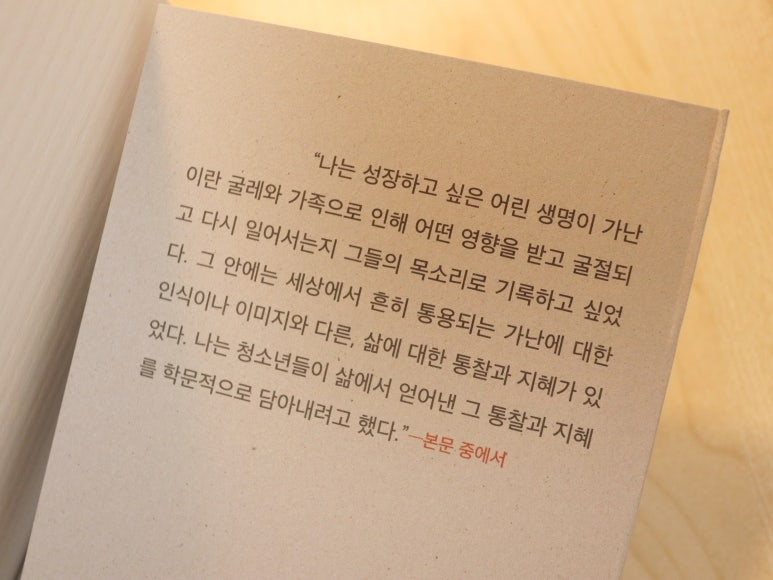 “나는 성장하고 싶은 어린 생명이 가난
이란 굴레와 가족으로 인해 어떤 영향을 받고 굴절되
고 다시 일어서는지 그들의 목소리로 기록하고 싶었
다. 그 안에는 세상에서 흔히 통용되는 가난에 대한
인식이나 이미지와 다른, 삶에 대한 통찰과 지혜가 있
었다. 나는 청소년들이 삶에서 얻어낸 그 통찰과 지혜
를 학문적으로 담아내려고 했다.” —본문 중에서